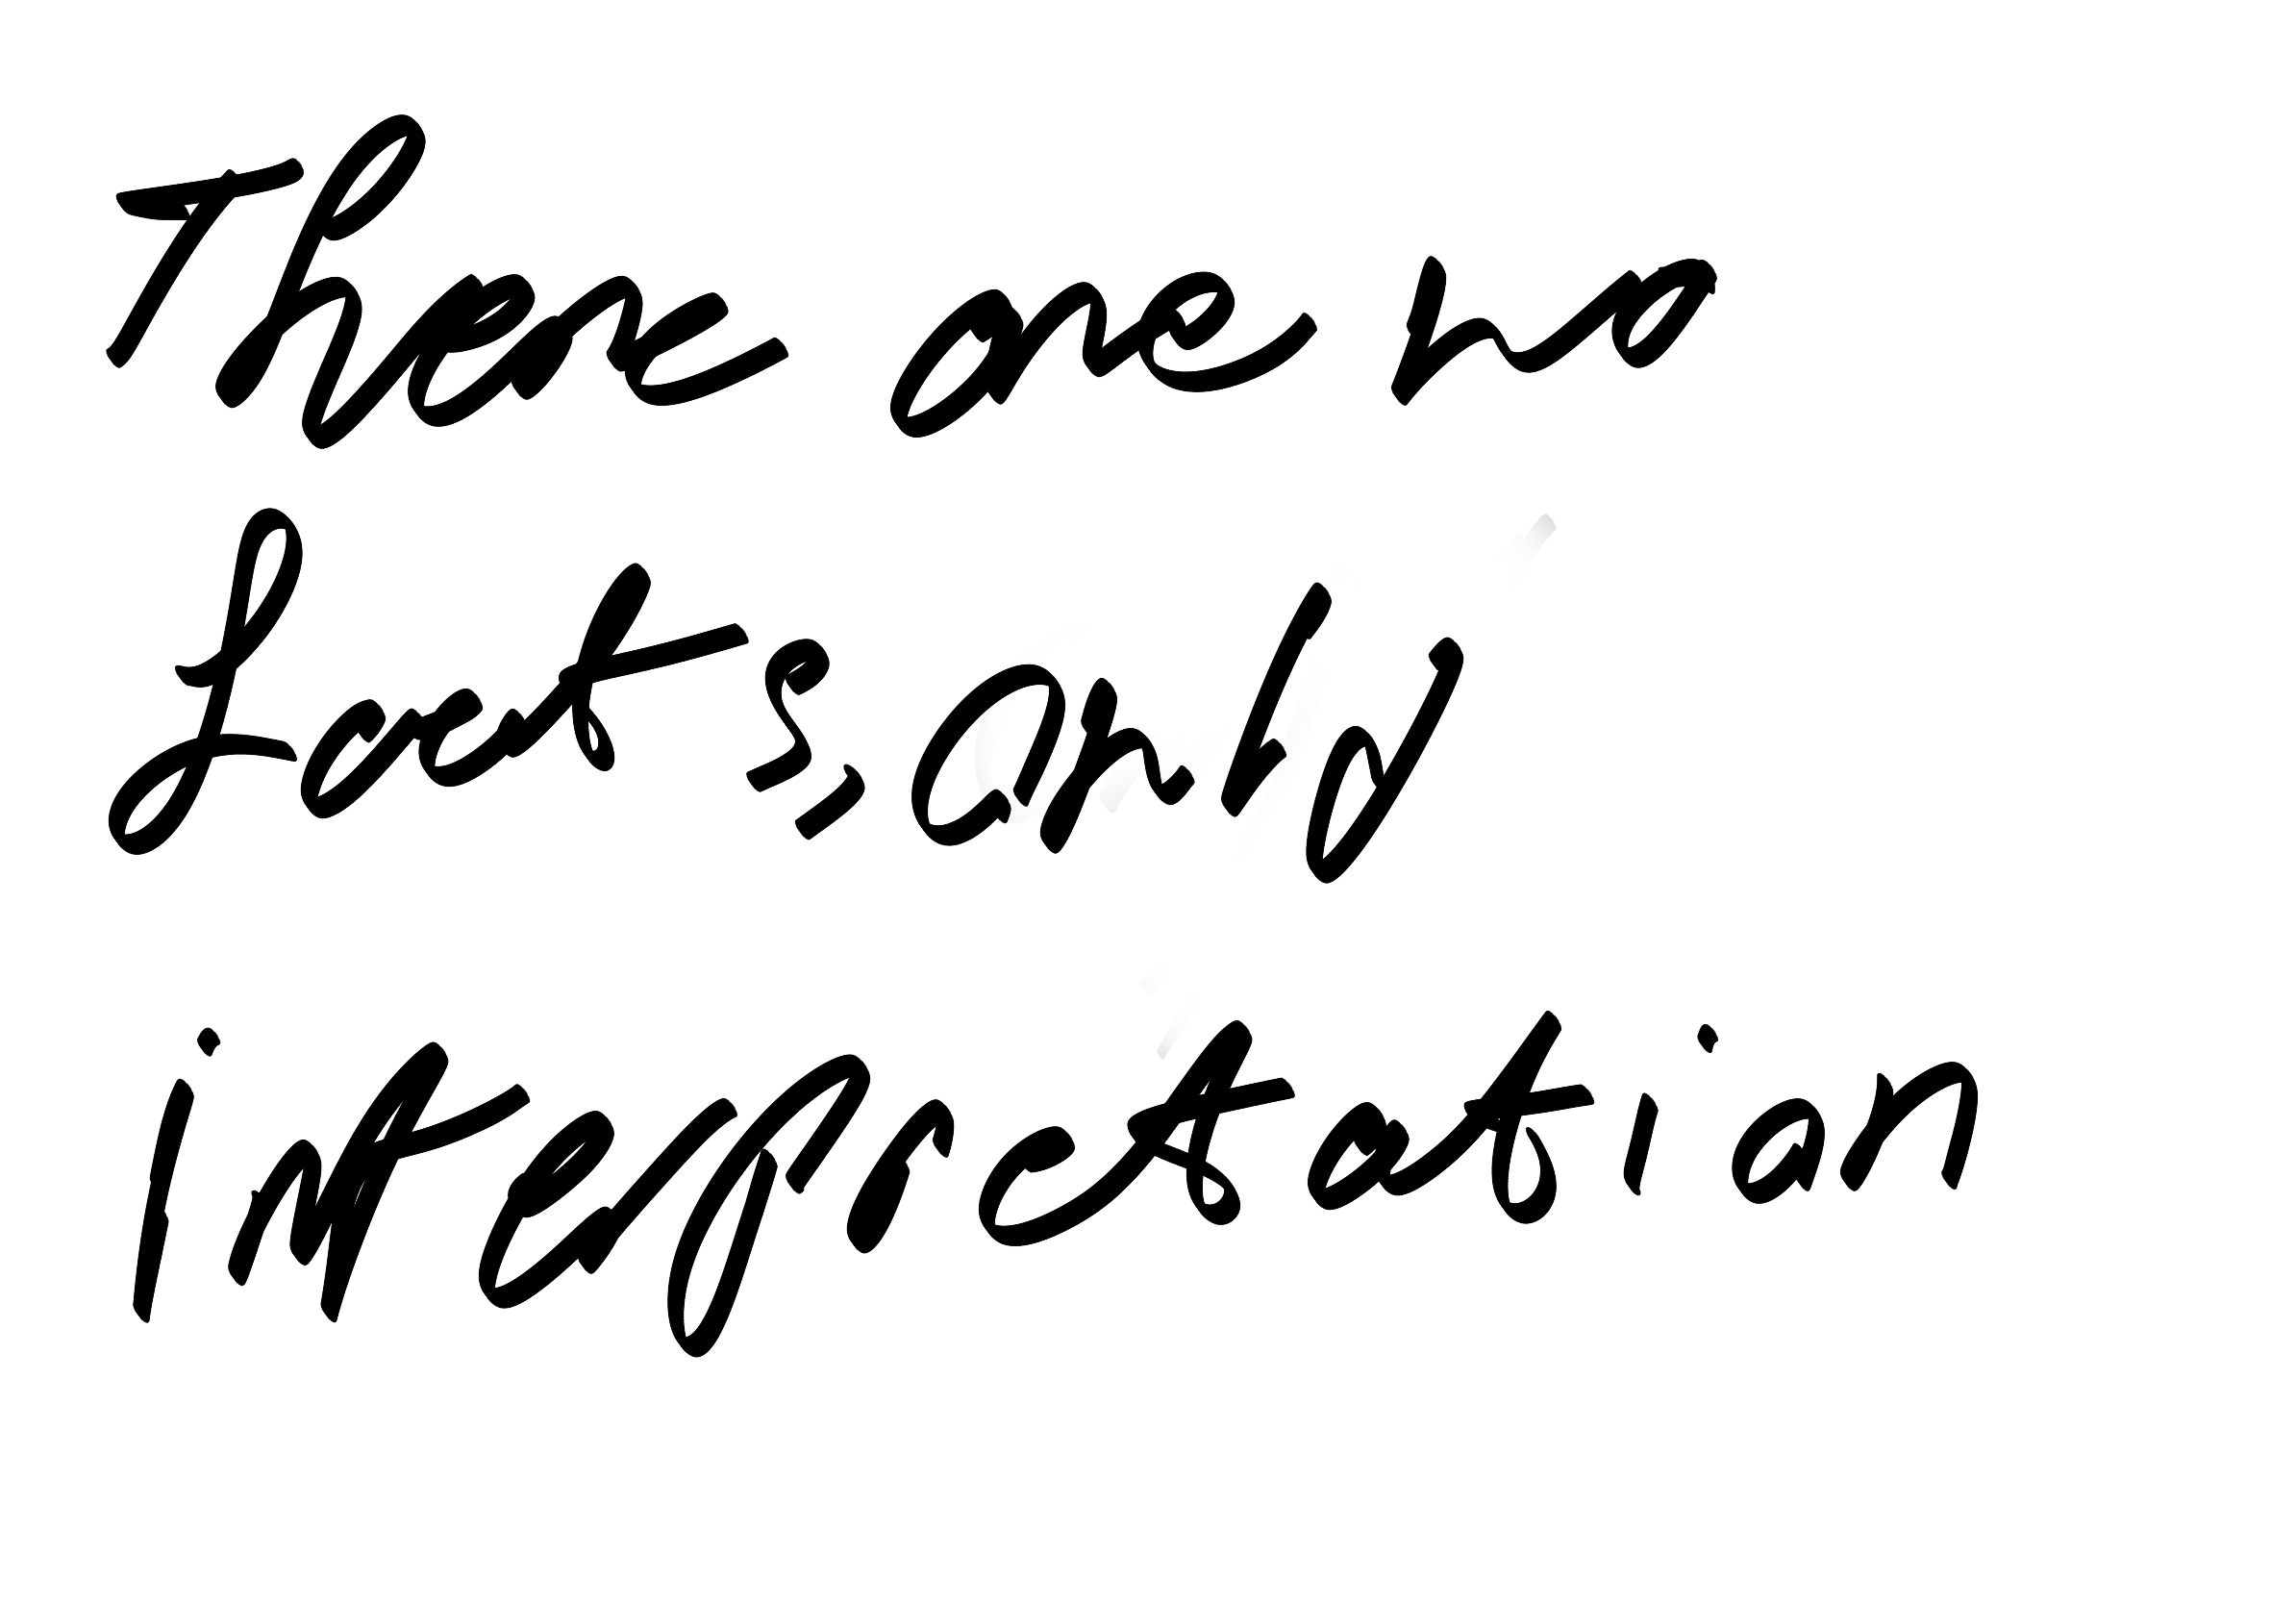 There are no
facts, only
interpretation